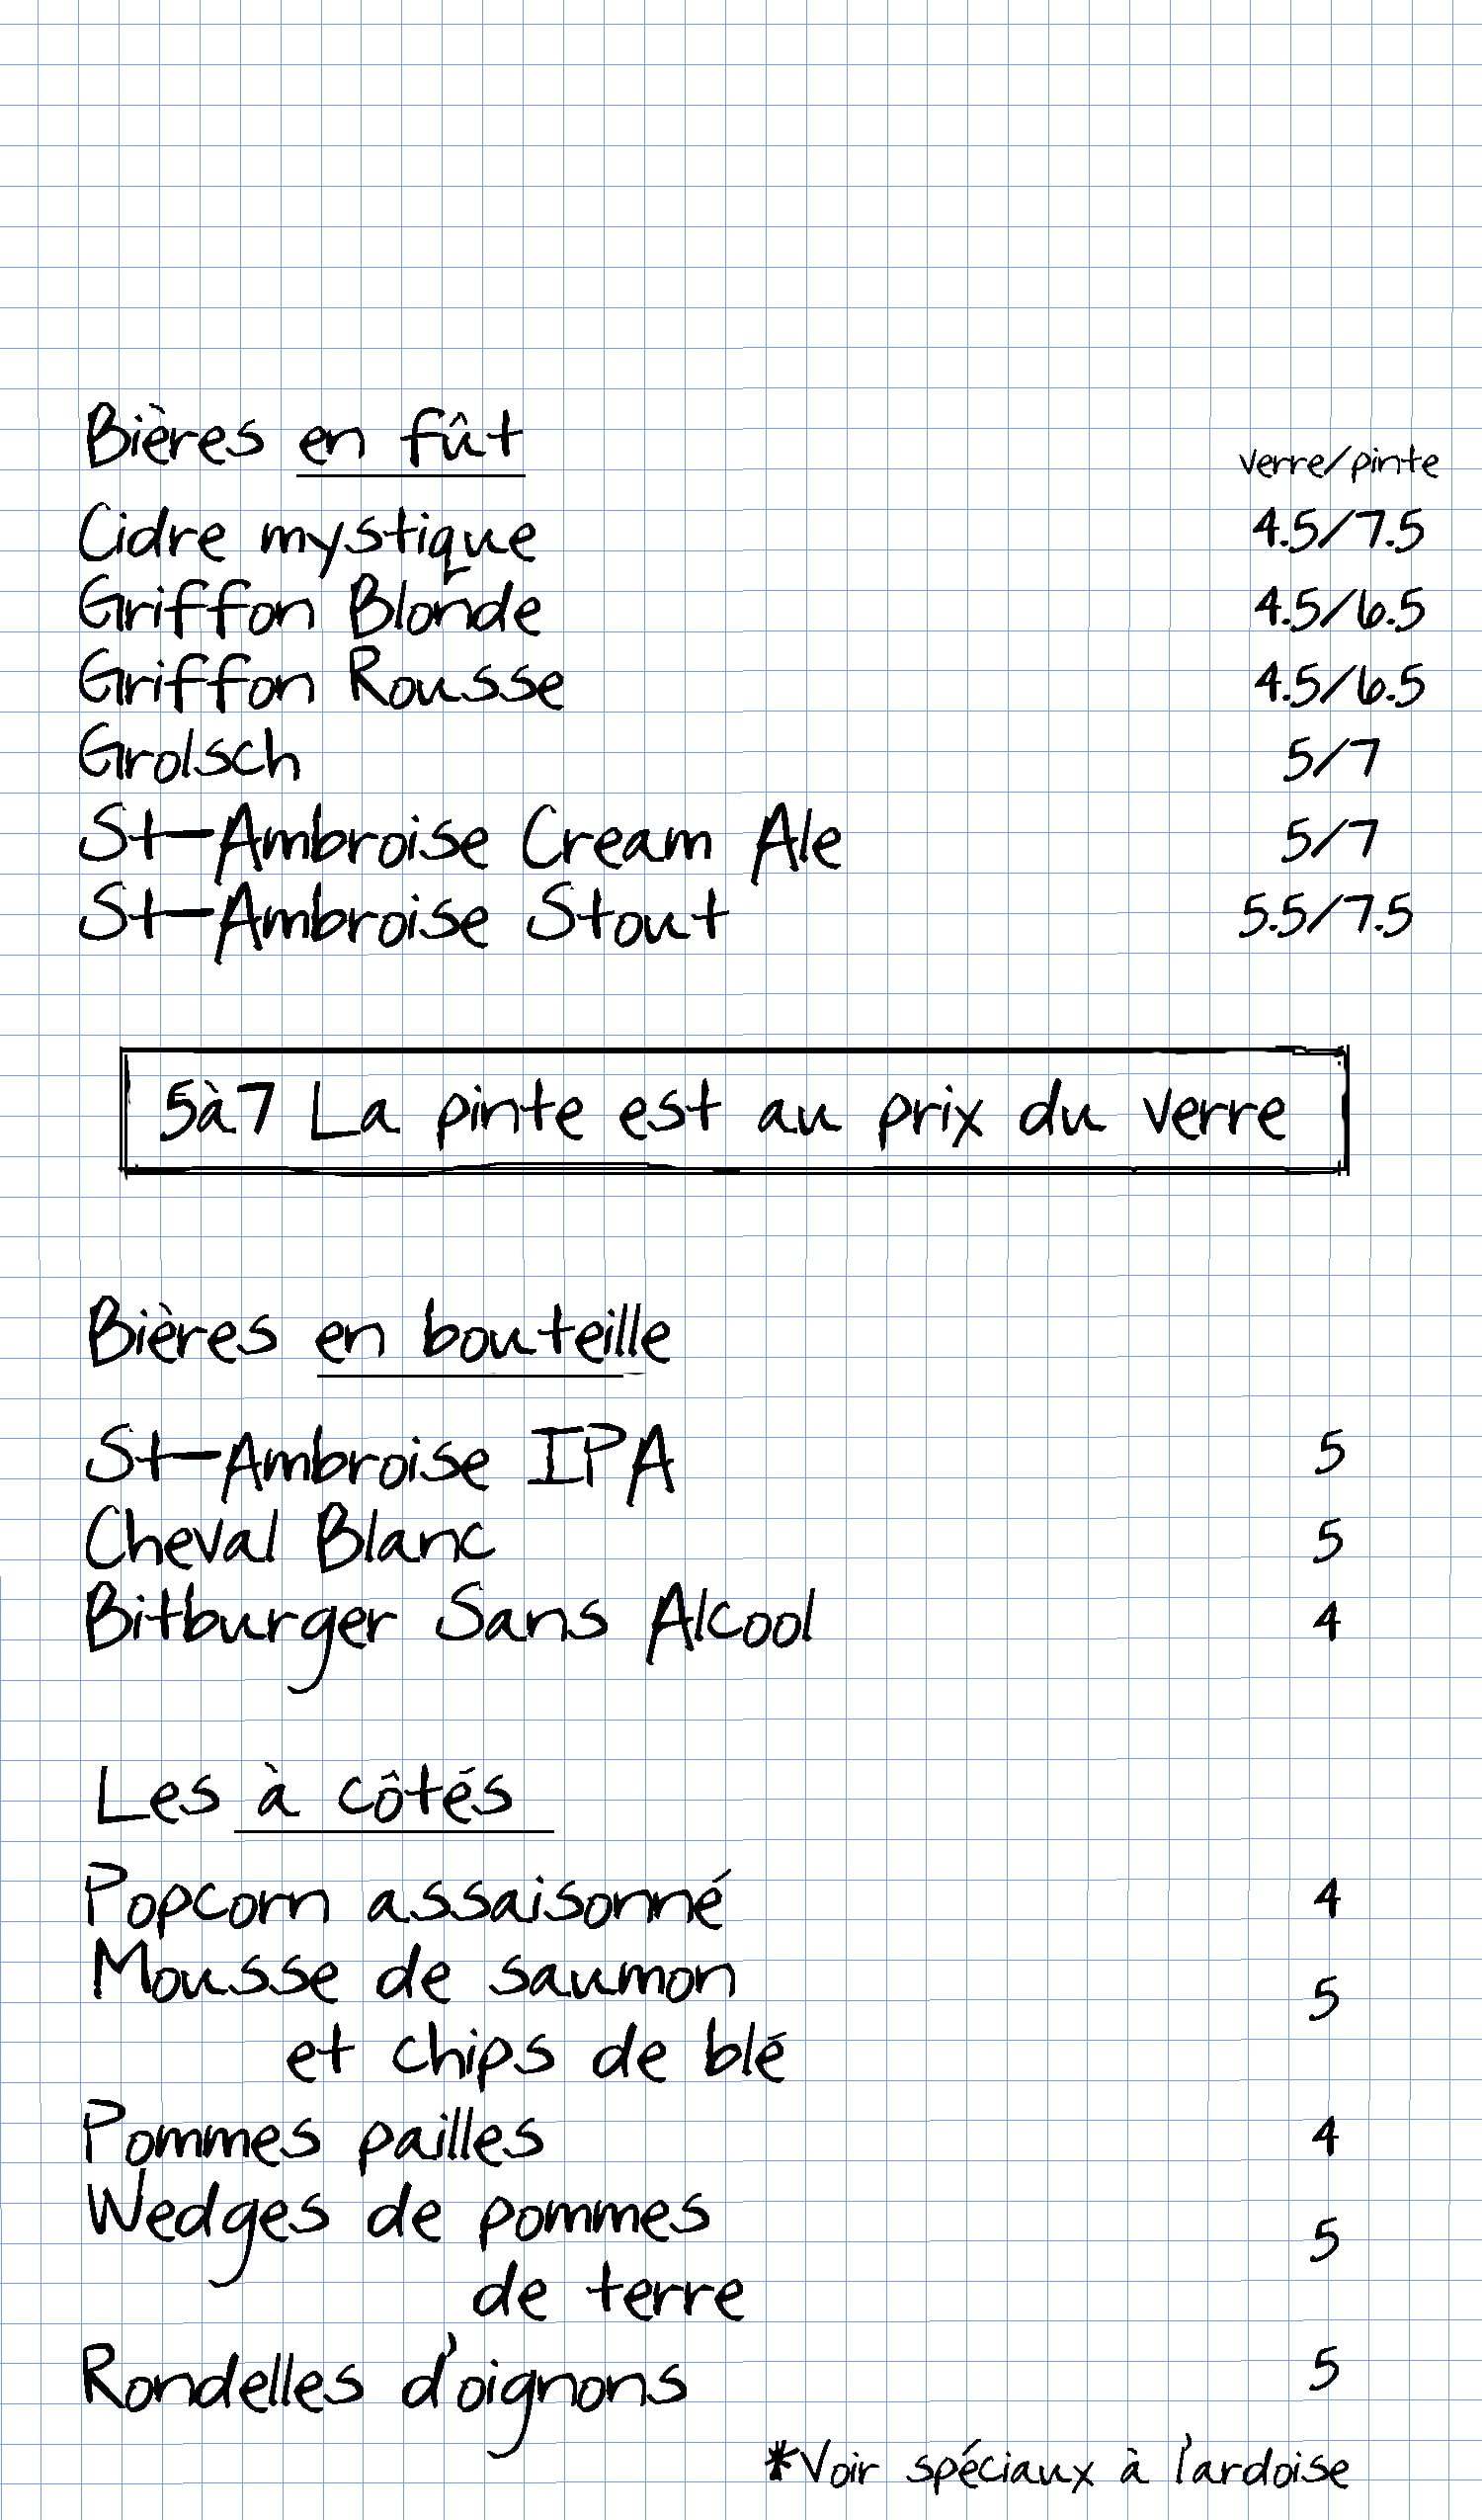 Bières en fût
verre/pinte
Cidre mystique 4.5/7.5
Griffon Blonde 4.5/6.5
Griffon Rousse 4.5/6.5
Grolsch 5/7
St-Ambroise Cream Ale 5/7
St-Ambroise Stout 5.5/7.5
5à7 La pinte est au prix du verre
Bières en bouteille
St-Ambroise IPA 5
Cheval Blanc 5
Bitburger Sans Alcool 4
Les à côtés
Popcorn assaisonné 4
Mousse de saumon 5
et chips de blé
Pommes pailles 4
Wedges de pommes 5
de terre
Rondelles d'oignons 5
*Voir spéciaux à l'ardoise